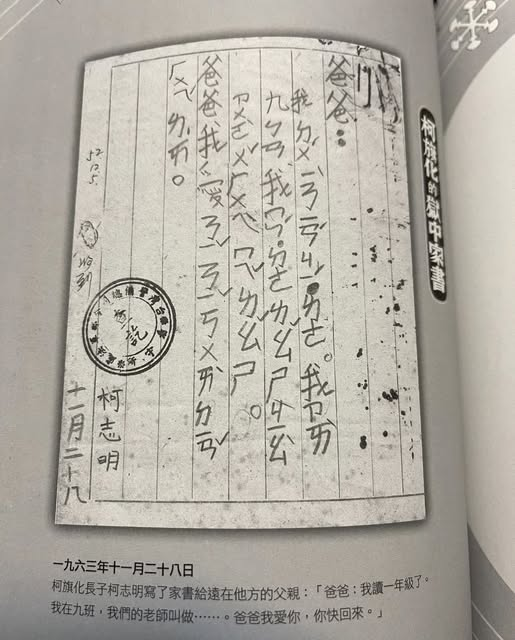 柯旗化的獄中家書
爸爸：
我ㄉㄨˊ ㄋㄧㄢˊ ㄐㄧˊ ˙ㄌㄜ。我ㄗㄞˋ
九ㄅㄢ 我ㄇㄣ˙ ㄉㄜ ㄌㄠˇ ㄕ ㄐㄧㄠˋ
ㄌㄠˇ ㄕ。
爸爸我愛ㄋㄧˇ ㄋㄧˇ ㄎㄨㄞˋ ㄉㄧㄢˇ
ㄏㄨㄟˊ ㄌㄞˊ。
柯志明
十一月二十八
52.12.5.
收到
一九六三年十一月二十八日
柯旗化長子柯志明寫了家書給遠在他方的父親：「爸爸：我讀一年級了。
我在九班，我們的老師叫做⋯⋯。爸爸我愛你，你快回來。」